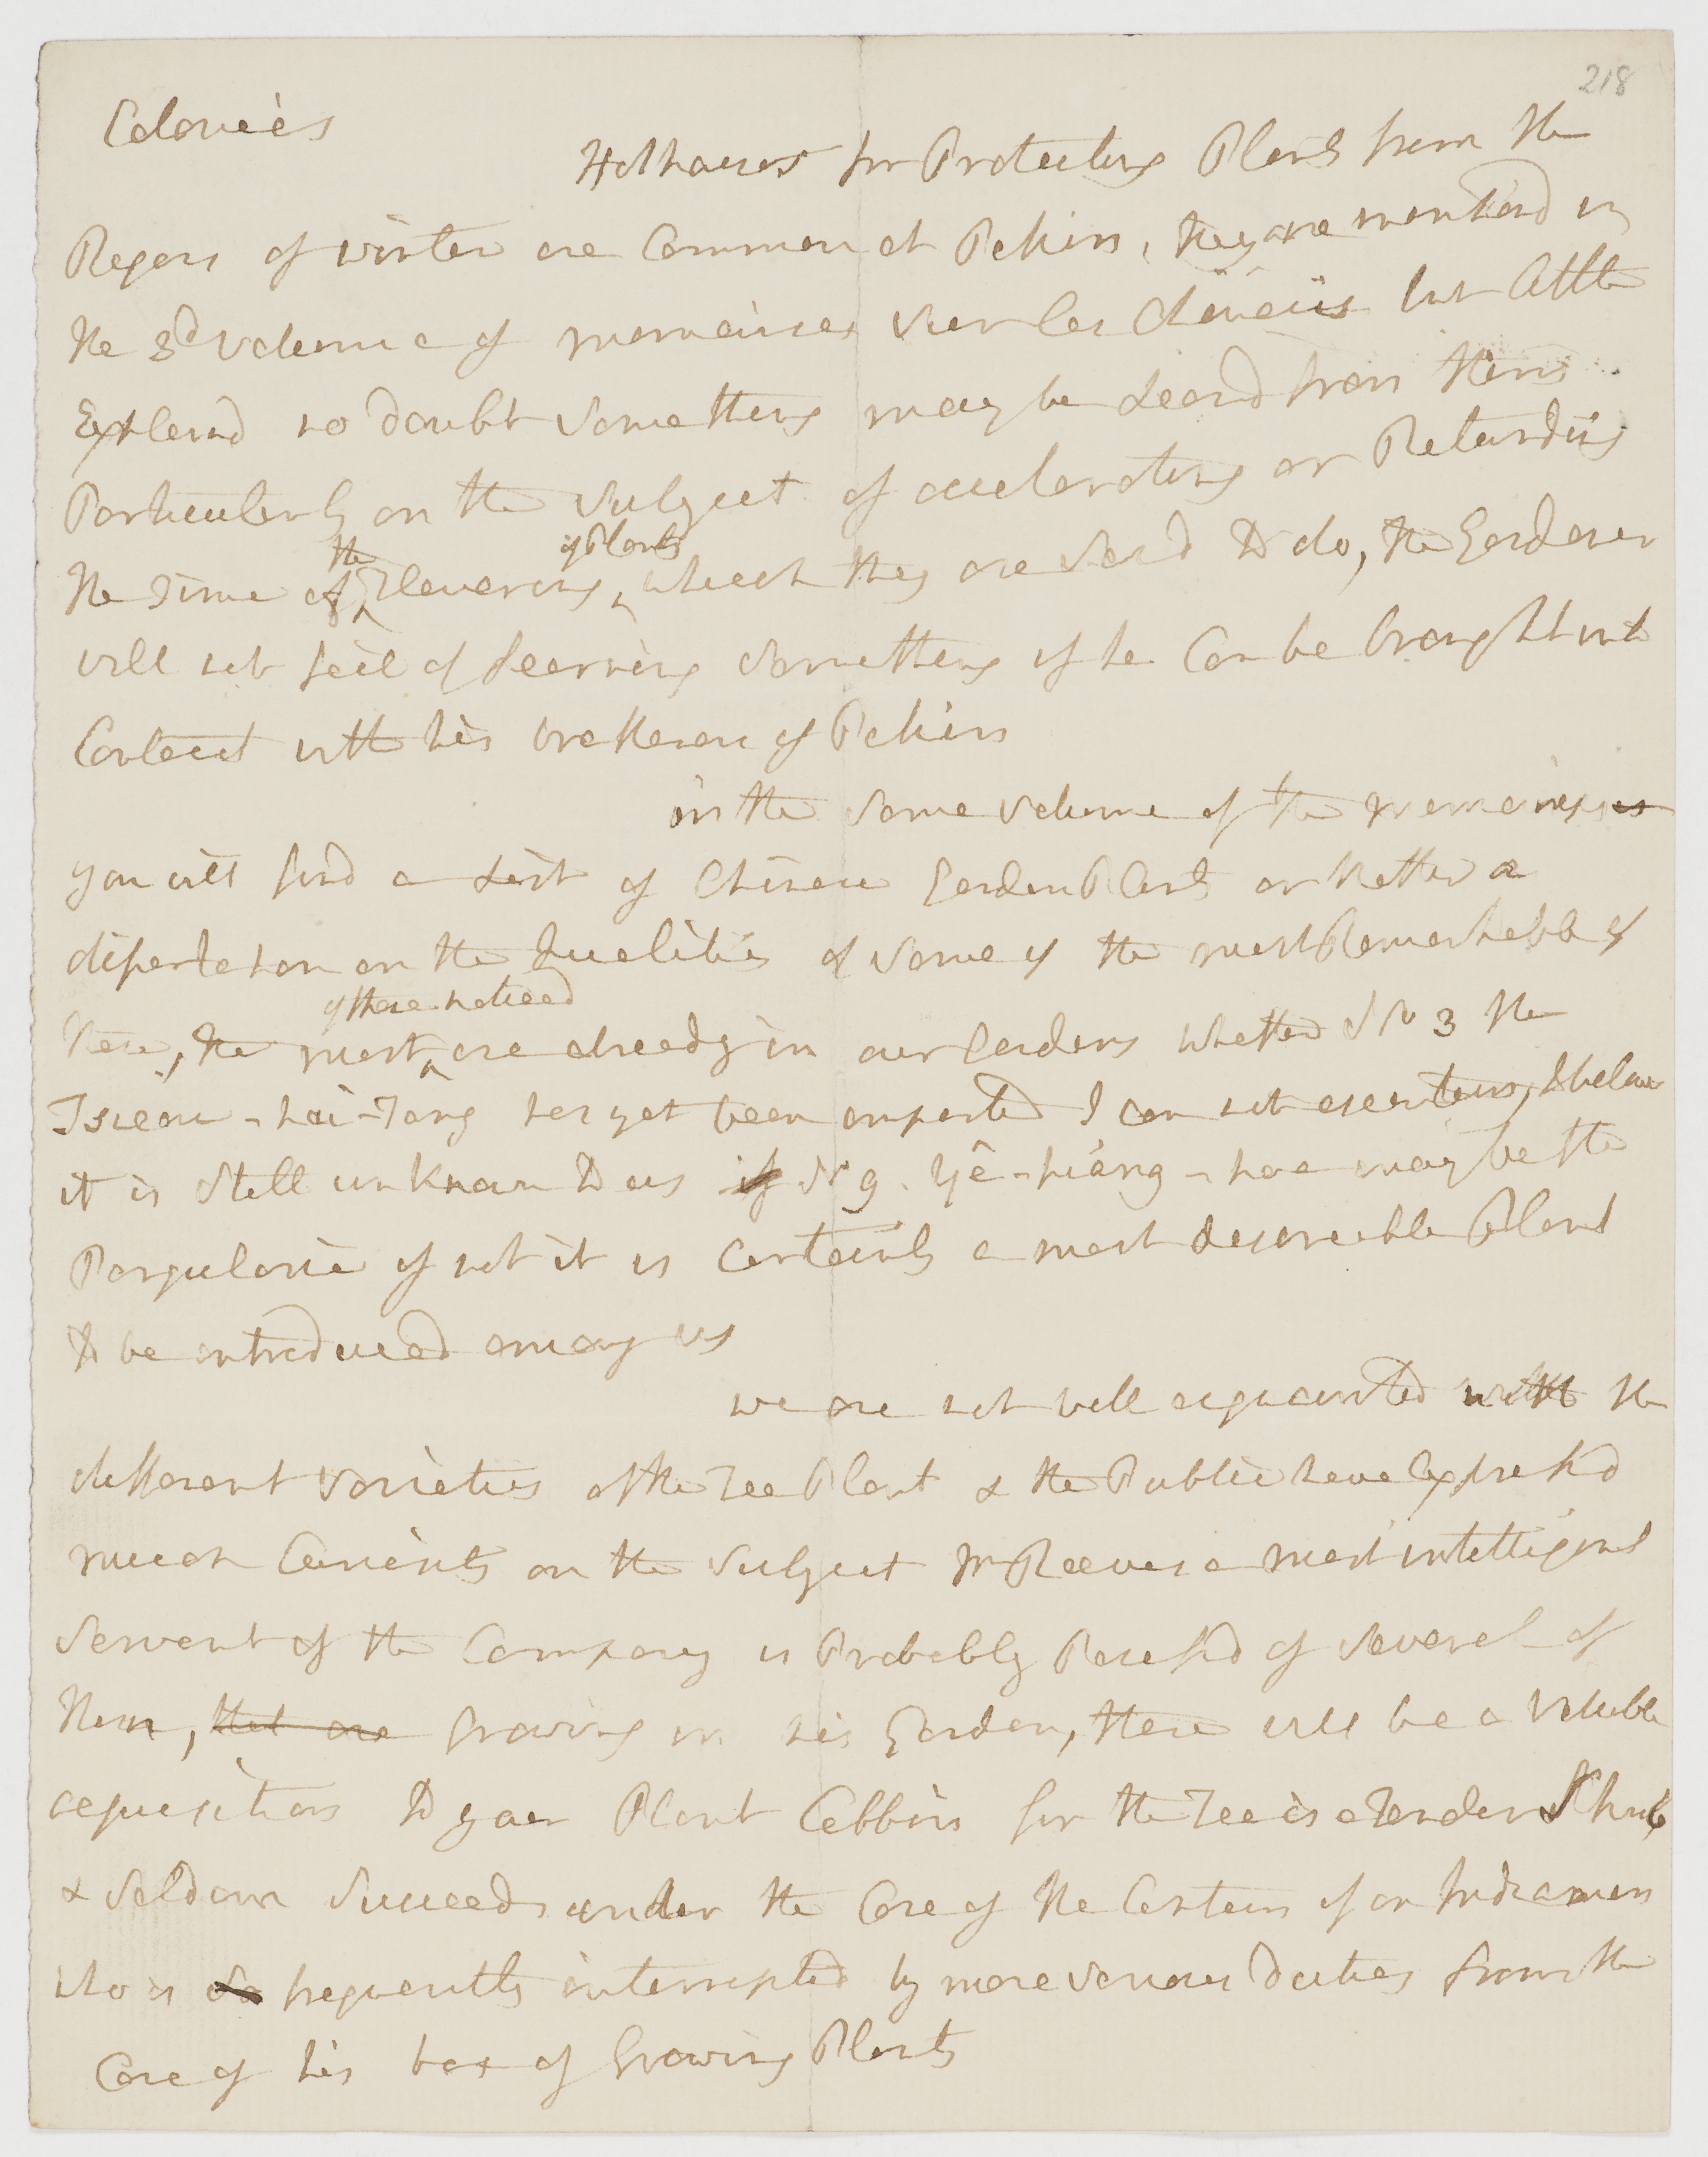 218
Colonies
Hothouses for Protecting Plants from the
Rigors of winter are Common at Pekin, they are mentiond in
the 3d volume of memoires sur les Chinois but little
Explaind no doubt something may be Learnd from them
Particularly on the subject of accelerating or Retarding
the
of Plants
the Time of Flowering, which they are said to do, the Gardener
will not fail of learning something if he Can be brought into
Contact with his bretheren of Pekin
in the same volume of the memoires
you will find a List of Chinese Garden Plants or Rather a
dissertation on the Qualities of some of the most Remarkable of
of those noticed
them, the most are already in our Gardens whether No 3 the
Tsieou-hai-Tang has yet been imported I can not ascertain, I beleive
it is still unknown to us if No 9. Yê-hiang-hoa may be the
Pergularia if not it is Certainly a most desireable Plant
to be introduced among us
we are not well acquainted with the
different varieties of the Tea Plant & the Public have Expressd
much Curiosity on the subject Mr Reeves a most intelligent
servant of the Company is Probably Possessd of several of
them, that are growing in his Garden, these will be a valuable
acquisition to your Plant Cabbin for the Tea is a Tender Shrub
& seldom succeeds under the Care of the Captain of an Indiaman
who is so frequently interrupted by more serious duties from the
Care of his box of Growing Plants